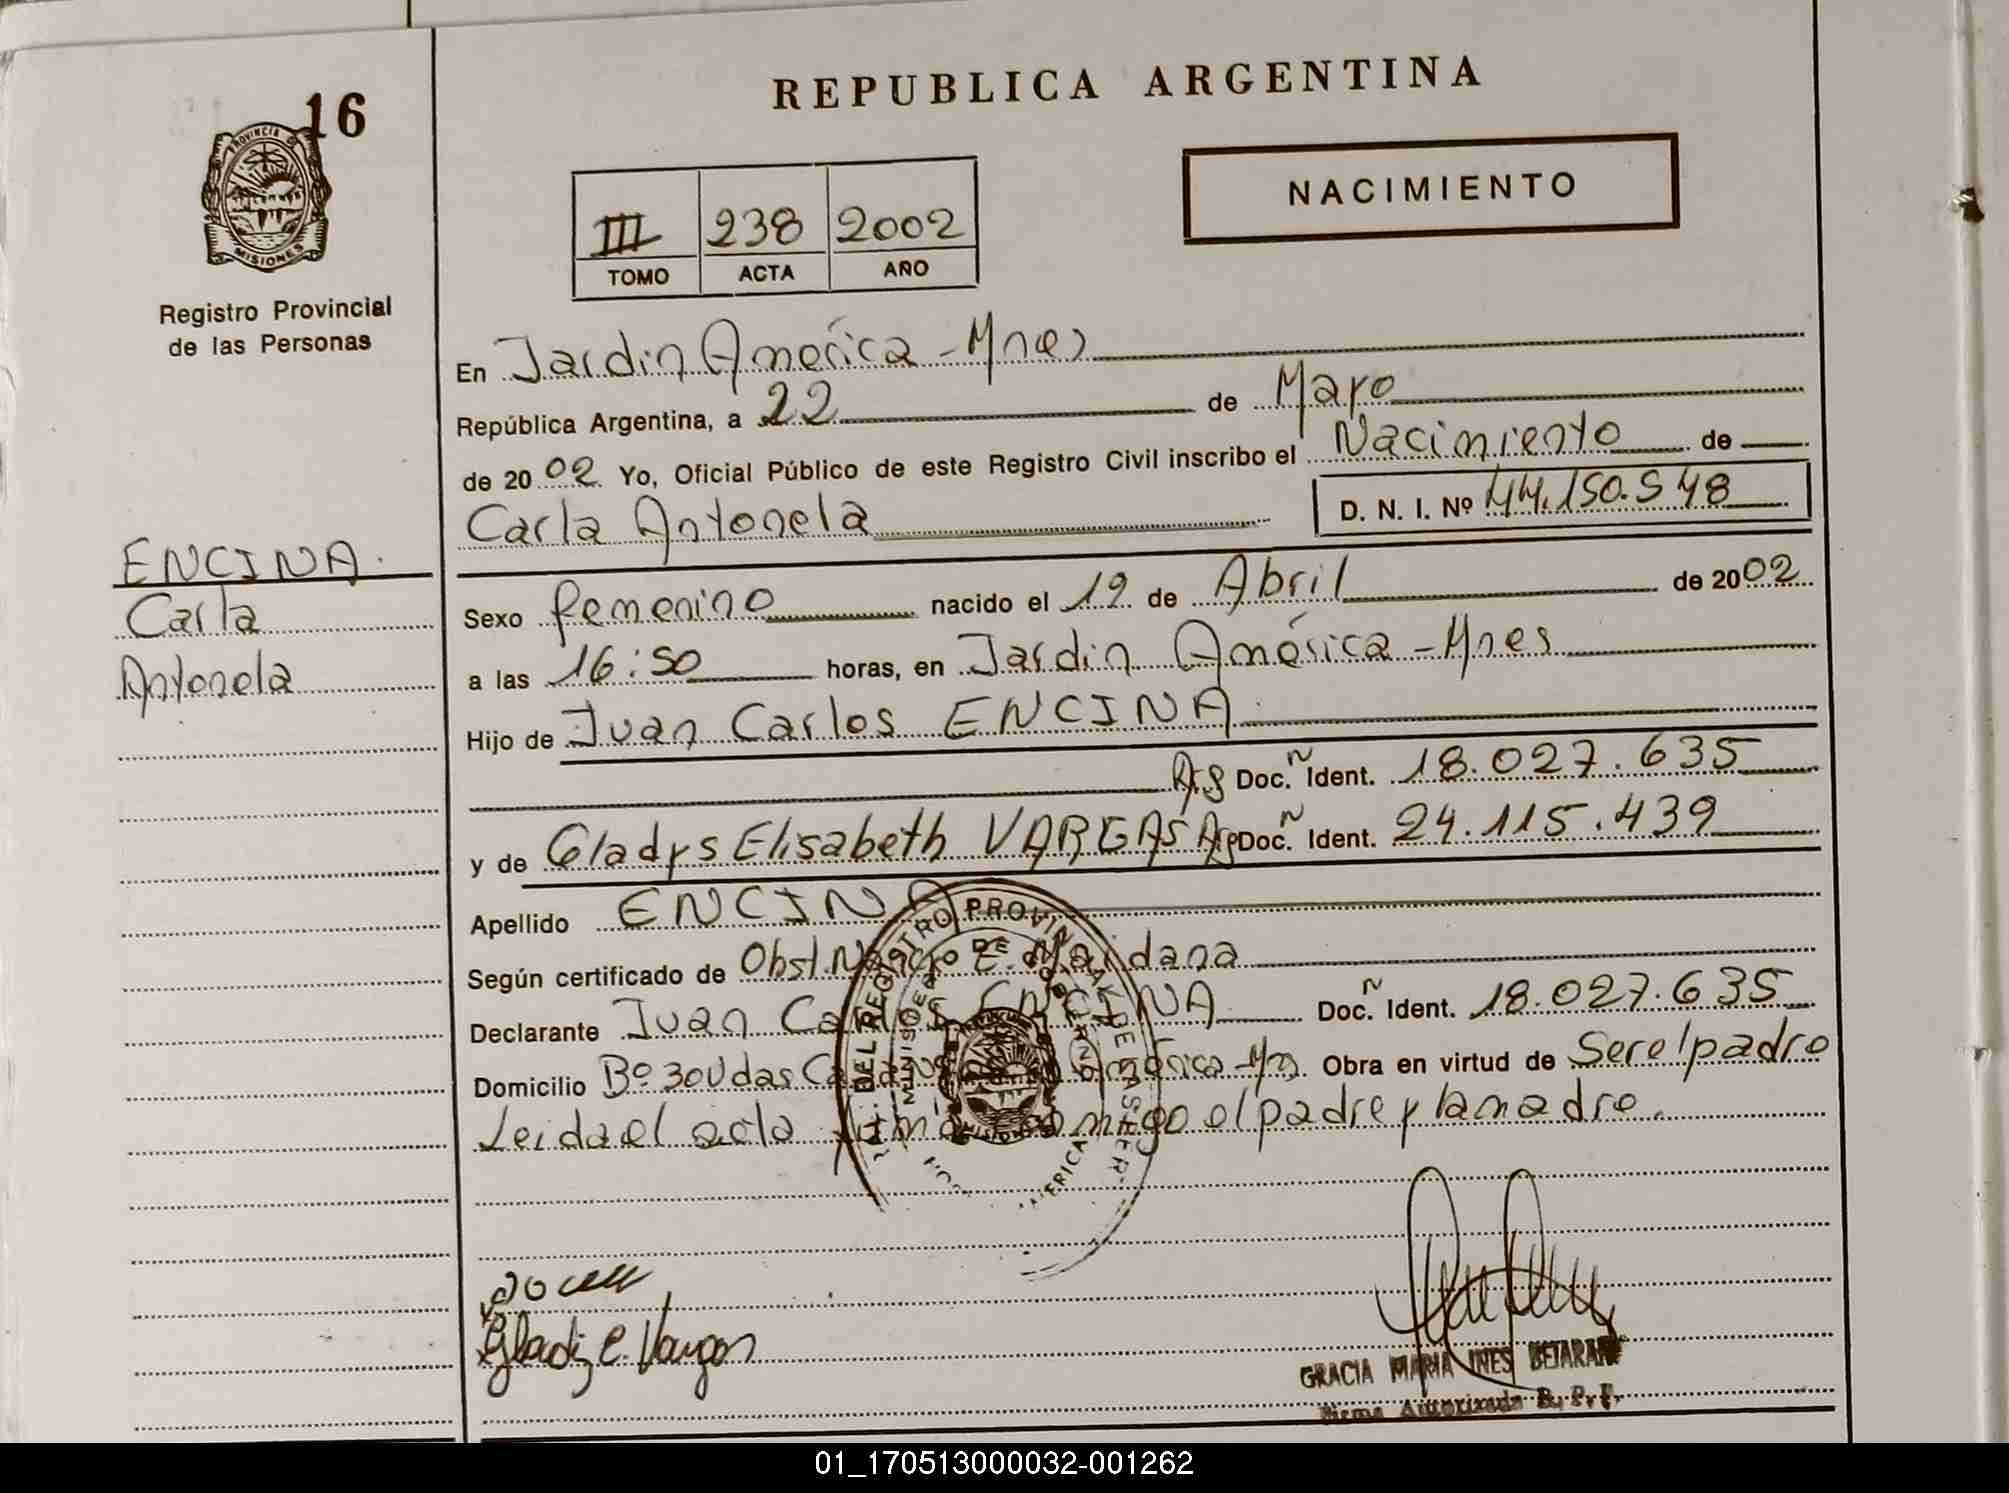 16
PROVINCIA
MISIONES
Registro Provincial
de las Personas
REPUBLICA ARGENTINA
NACIMIENTO
III 238 2002
TOMO ACTA AÑO
En Jardin América - Mnes
República Argentina, a 22 de Mayo
de 2002 Yo, Oficial Público de este Registro Civil inscribo el Nacimiento de
Carla Antonela D. N. I. Nº 44.150.548
ENCINA.
Carla
Antonela
Sexo femenino nacido el 19 de Abril de 2002
a las 16:50 horas, en Jardin América - Mnes
Hijo de Juan Carlos ENCINA
Arg Doc. Ident. 18.027.635
y de Gladys Elisabeth VARGAS Arg Doc. Ident. 24.115.439
Apellido ENCINA
Según certificado de Obst. E. Maidana
Declarante Juan Carlos ENCINA Doc. Ident. 18.027.635
Domicilio Bº 30 Vdas América - Mn. Obra en virtud de Ser el padre
Leida el acta conmigo el padre y la madre.
DEL REGISTRO PROVIN
MINISTER
DE
AMERICA
Gladiz E. Vargas
GRACIA MARIA INES BEJARANO
Firma Autorizada R. P. P.
01_170513000032-001262